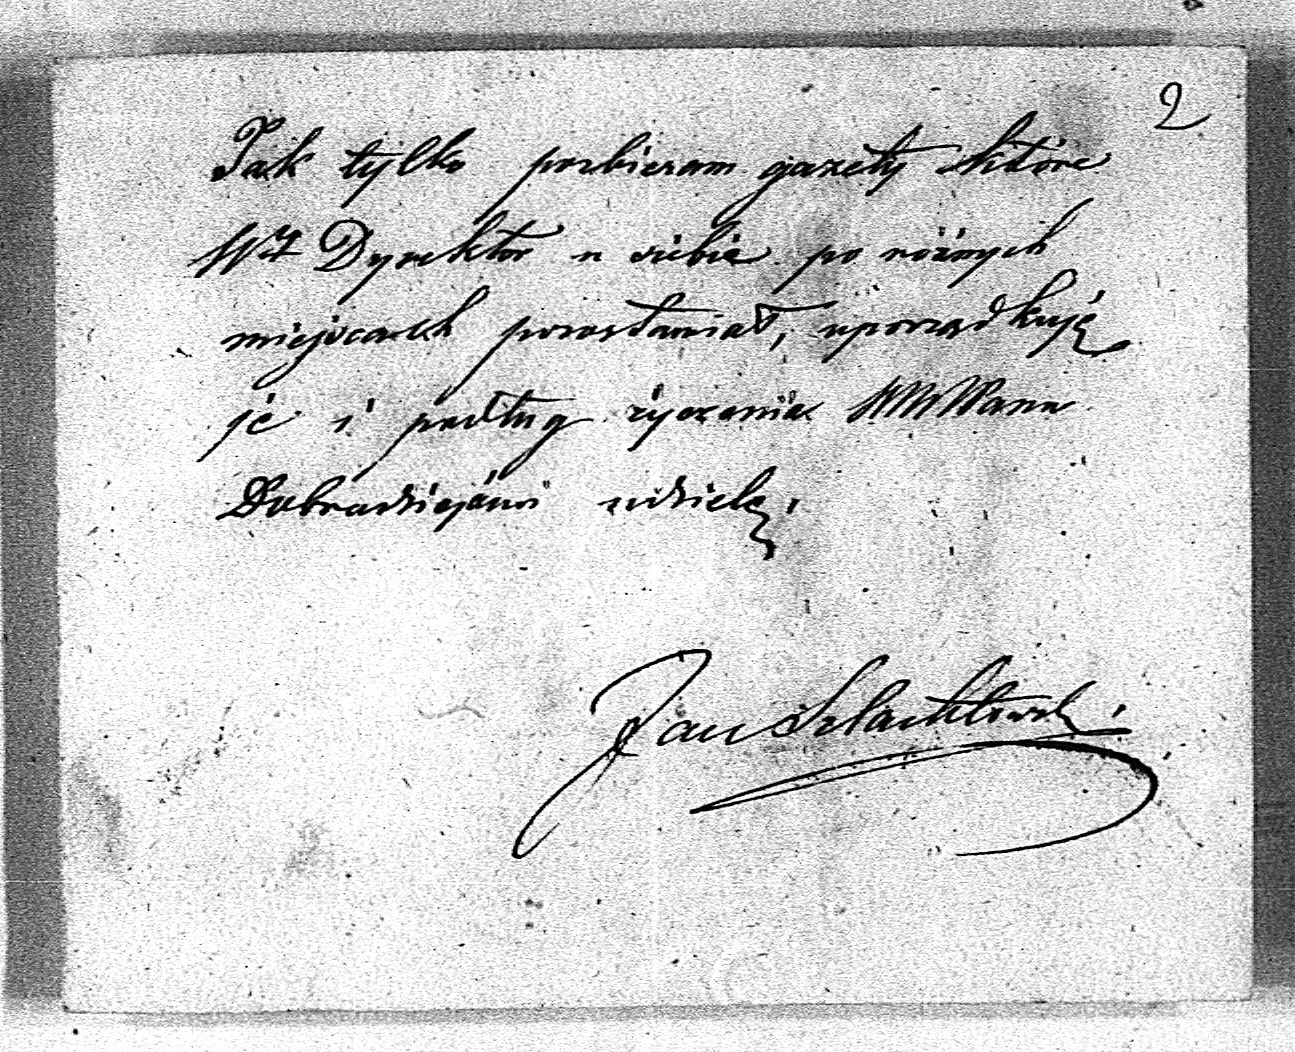 2
Jak tylko pozbieram gazety które
Wż Dyrektor u siebie po różnych
miejscach pozostawiał, uporządkuję
je i podług życzenia WW Pana
Dobrodziejowi udzielę.
Jan Szlachtowski